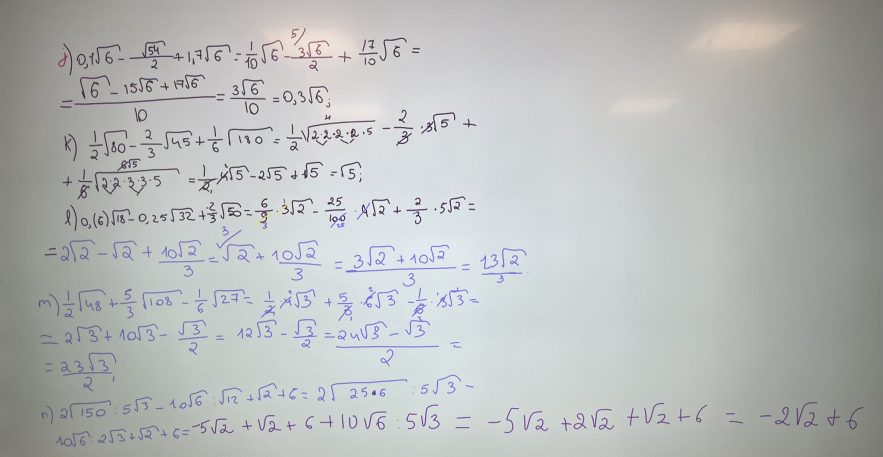 j) 0,1√6 - √54/2 + 1,7√6 = 1/10 √6 - 3√6/2 + 17/10 √6 =
= (√6 - 15√6 + 17√6)/10 = 3√6/10 = 0,3√6;
k) 1/2 √80 - 2/3 √45 + 1/6 √180 = 1/2 √(2·2·2·2·5) - 2/3 · 3√5 +
+ 1/6 √(2·2·3·3·5) = 1/2 · 4√5 - 2√5 + √5 = √5;
l) 0,(6)√18 - 0,25√32 + 2/3 √50 = 6/9 · 3√2 - 25/100 · 4√2 + 2/3 · 5√2 =
= 2√2 - √2 + 10√2/3 = √2 + 10√2/3 = (3√2 + 10√2)/3 = 13√2/3
m) 1/2 √48 + 5/3 √108 - 1/6 √27 = 1/2 · 4√3 + 5/3 · 6√3 - 1/6 · 3√3 =
= 2√3 + 10√3 - √3/2 = 12√3 - √3/2 = (24√3 - √3)/2 =
= 23√3/2;
n) 2√150 : 5√3 - 10√6 : √12 + √2 + 6 = 2√(25·6) : 5√3 -
10√6 : 2√3 + √2 + 6 = -5√2 + √2 + 6 + 10√6 : 5√3 = -5√2 + 2√2 + √2 + 6 = -2√2 + 6